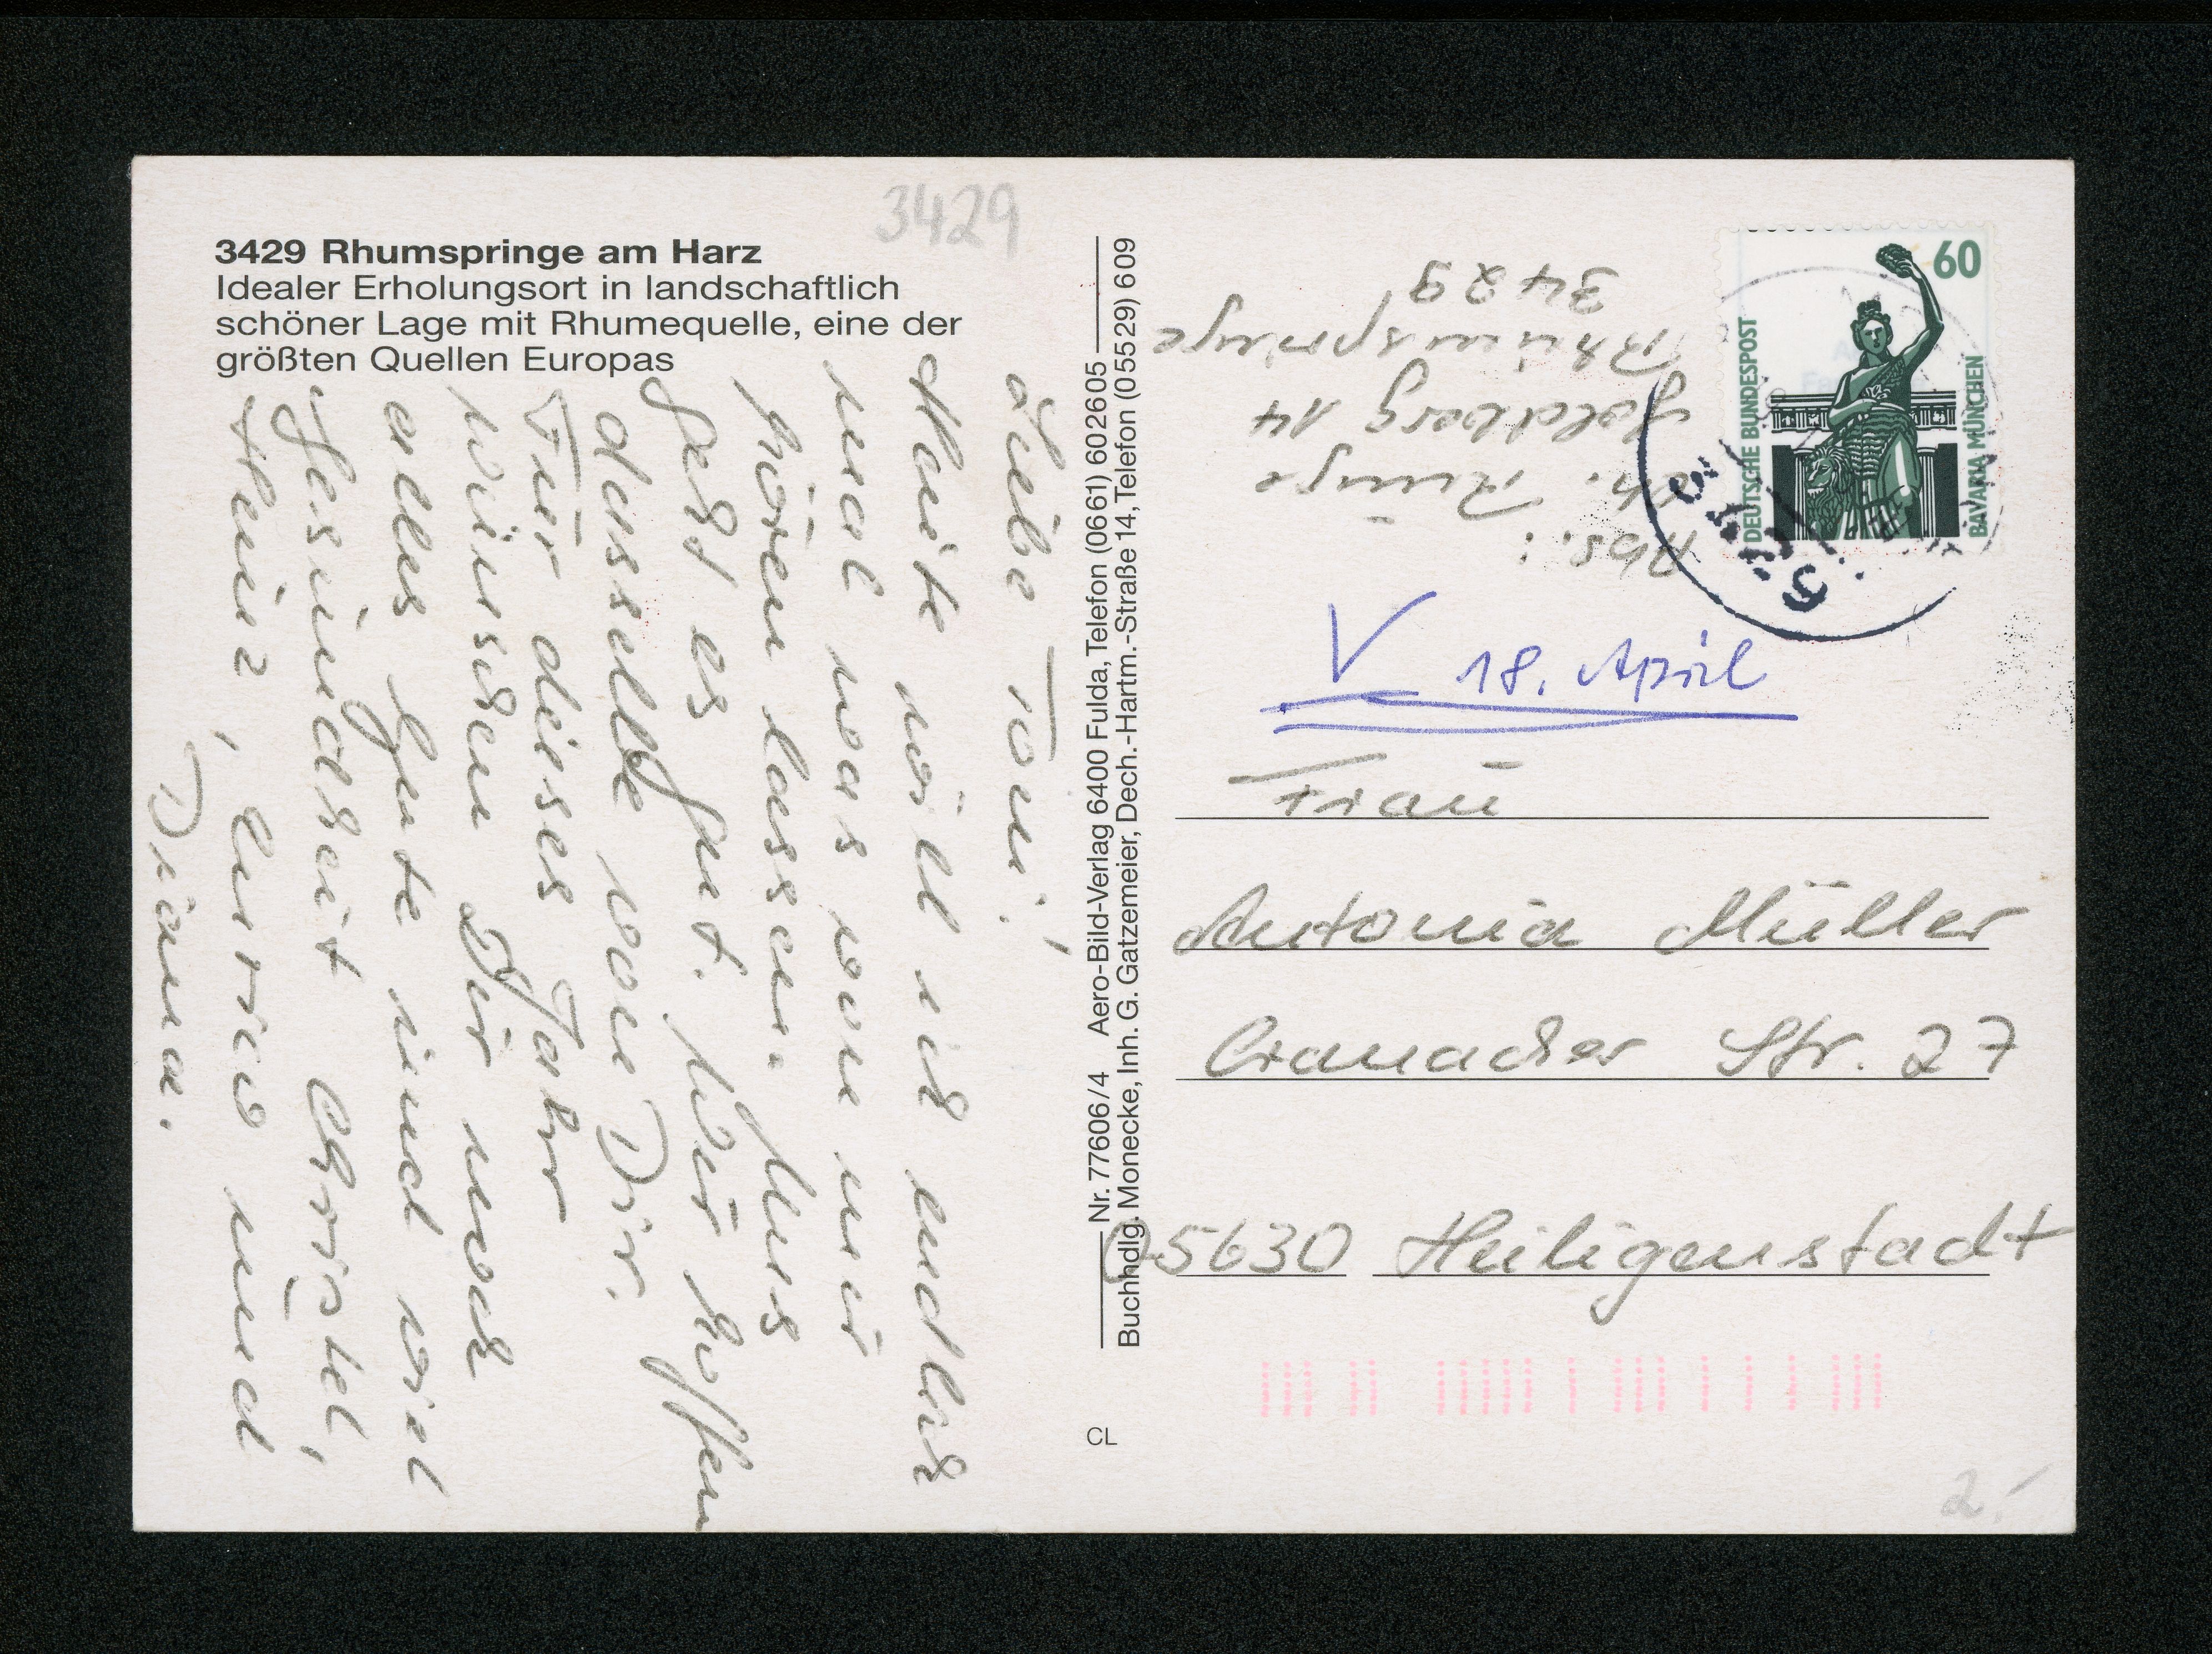 3429
3429 Rhumspringe am Harz
Idealer Erholungsort in landschaftlich
schöner Lage mit Rhumequelle, eine der
größten Quellen Europas
Liebe Toni!
Heute will ich endlich
mal was von mir
hören lassen. Uns
geht es gut. Wir hoffen
dasselbe von Dir.
Für dieses Jahr
wünschen Dir noch
alles Gute und viel
Gesundheit Christel,
Heinz, Enrico und
Diana.
Nr. 77606/4 Aero-Bild-Verlag 6400 Fulda, Telefon (0661) 602605
Buchhdlg. Monecke, Inh. G. Gatzemeier, Dech.-Hartm.-Straße 14, Telefon (05529) 609
CL
Abs.:
Ch. Runge
Goldberg 14
Rhumspringe
3429
60
DEUTSCHE BUNDESPOST
BAVARIA MÜNCHEN
V 18. April
Frau
Antonia Müller
Cranacher Str. 27
O-5630 Heiligenstadt
2.-